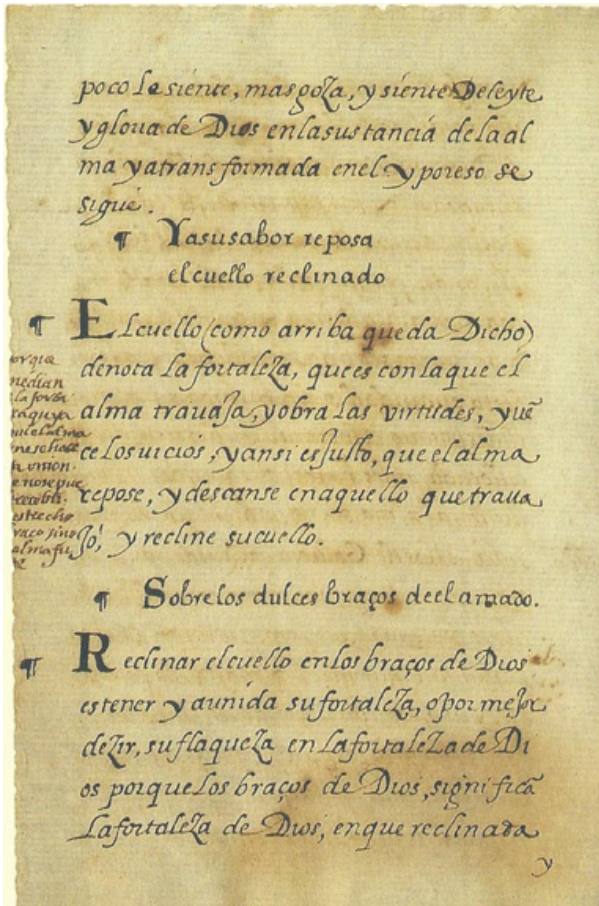 poco le siente, mas goza, y siente Deleyte
y gloria de Dios en la sustancia de la al
ma ya transformada en el y por eso se
sigue.
¶ Y a su sabor reposa
el cuello reclinado
¶ El cuello (como arriba queda Dicho)
denota la fortaleza, que es con la que el
alma travaja, y obra las virtudes, y uē
ce los uicios, y ansi es justo, que el alma
repose, y descanse en aquello que traua
jó, y recline su cuello.
porque
median
la forta
alma
union
estrecho
braço sino
alma fu
¶ Sobre los dulces braços de el amado.
¶ Reclinar el cuello en los braços de Dios
es tener ya unida su fortaleza, o por mejor
dezir, su flaqueza en la fortaleza de Di
os porque los braços de Dios, significā
la fortaleza de Dios, en que reclinada
y